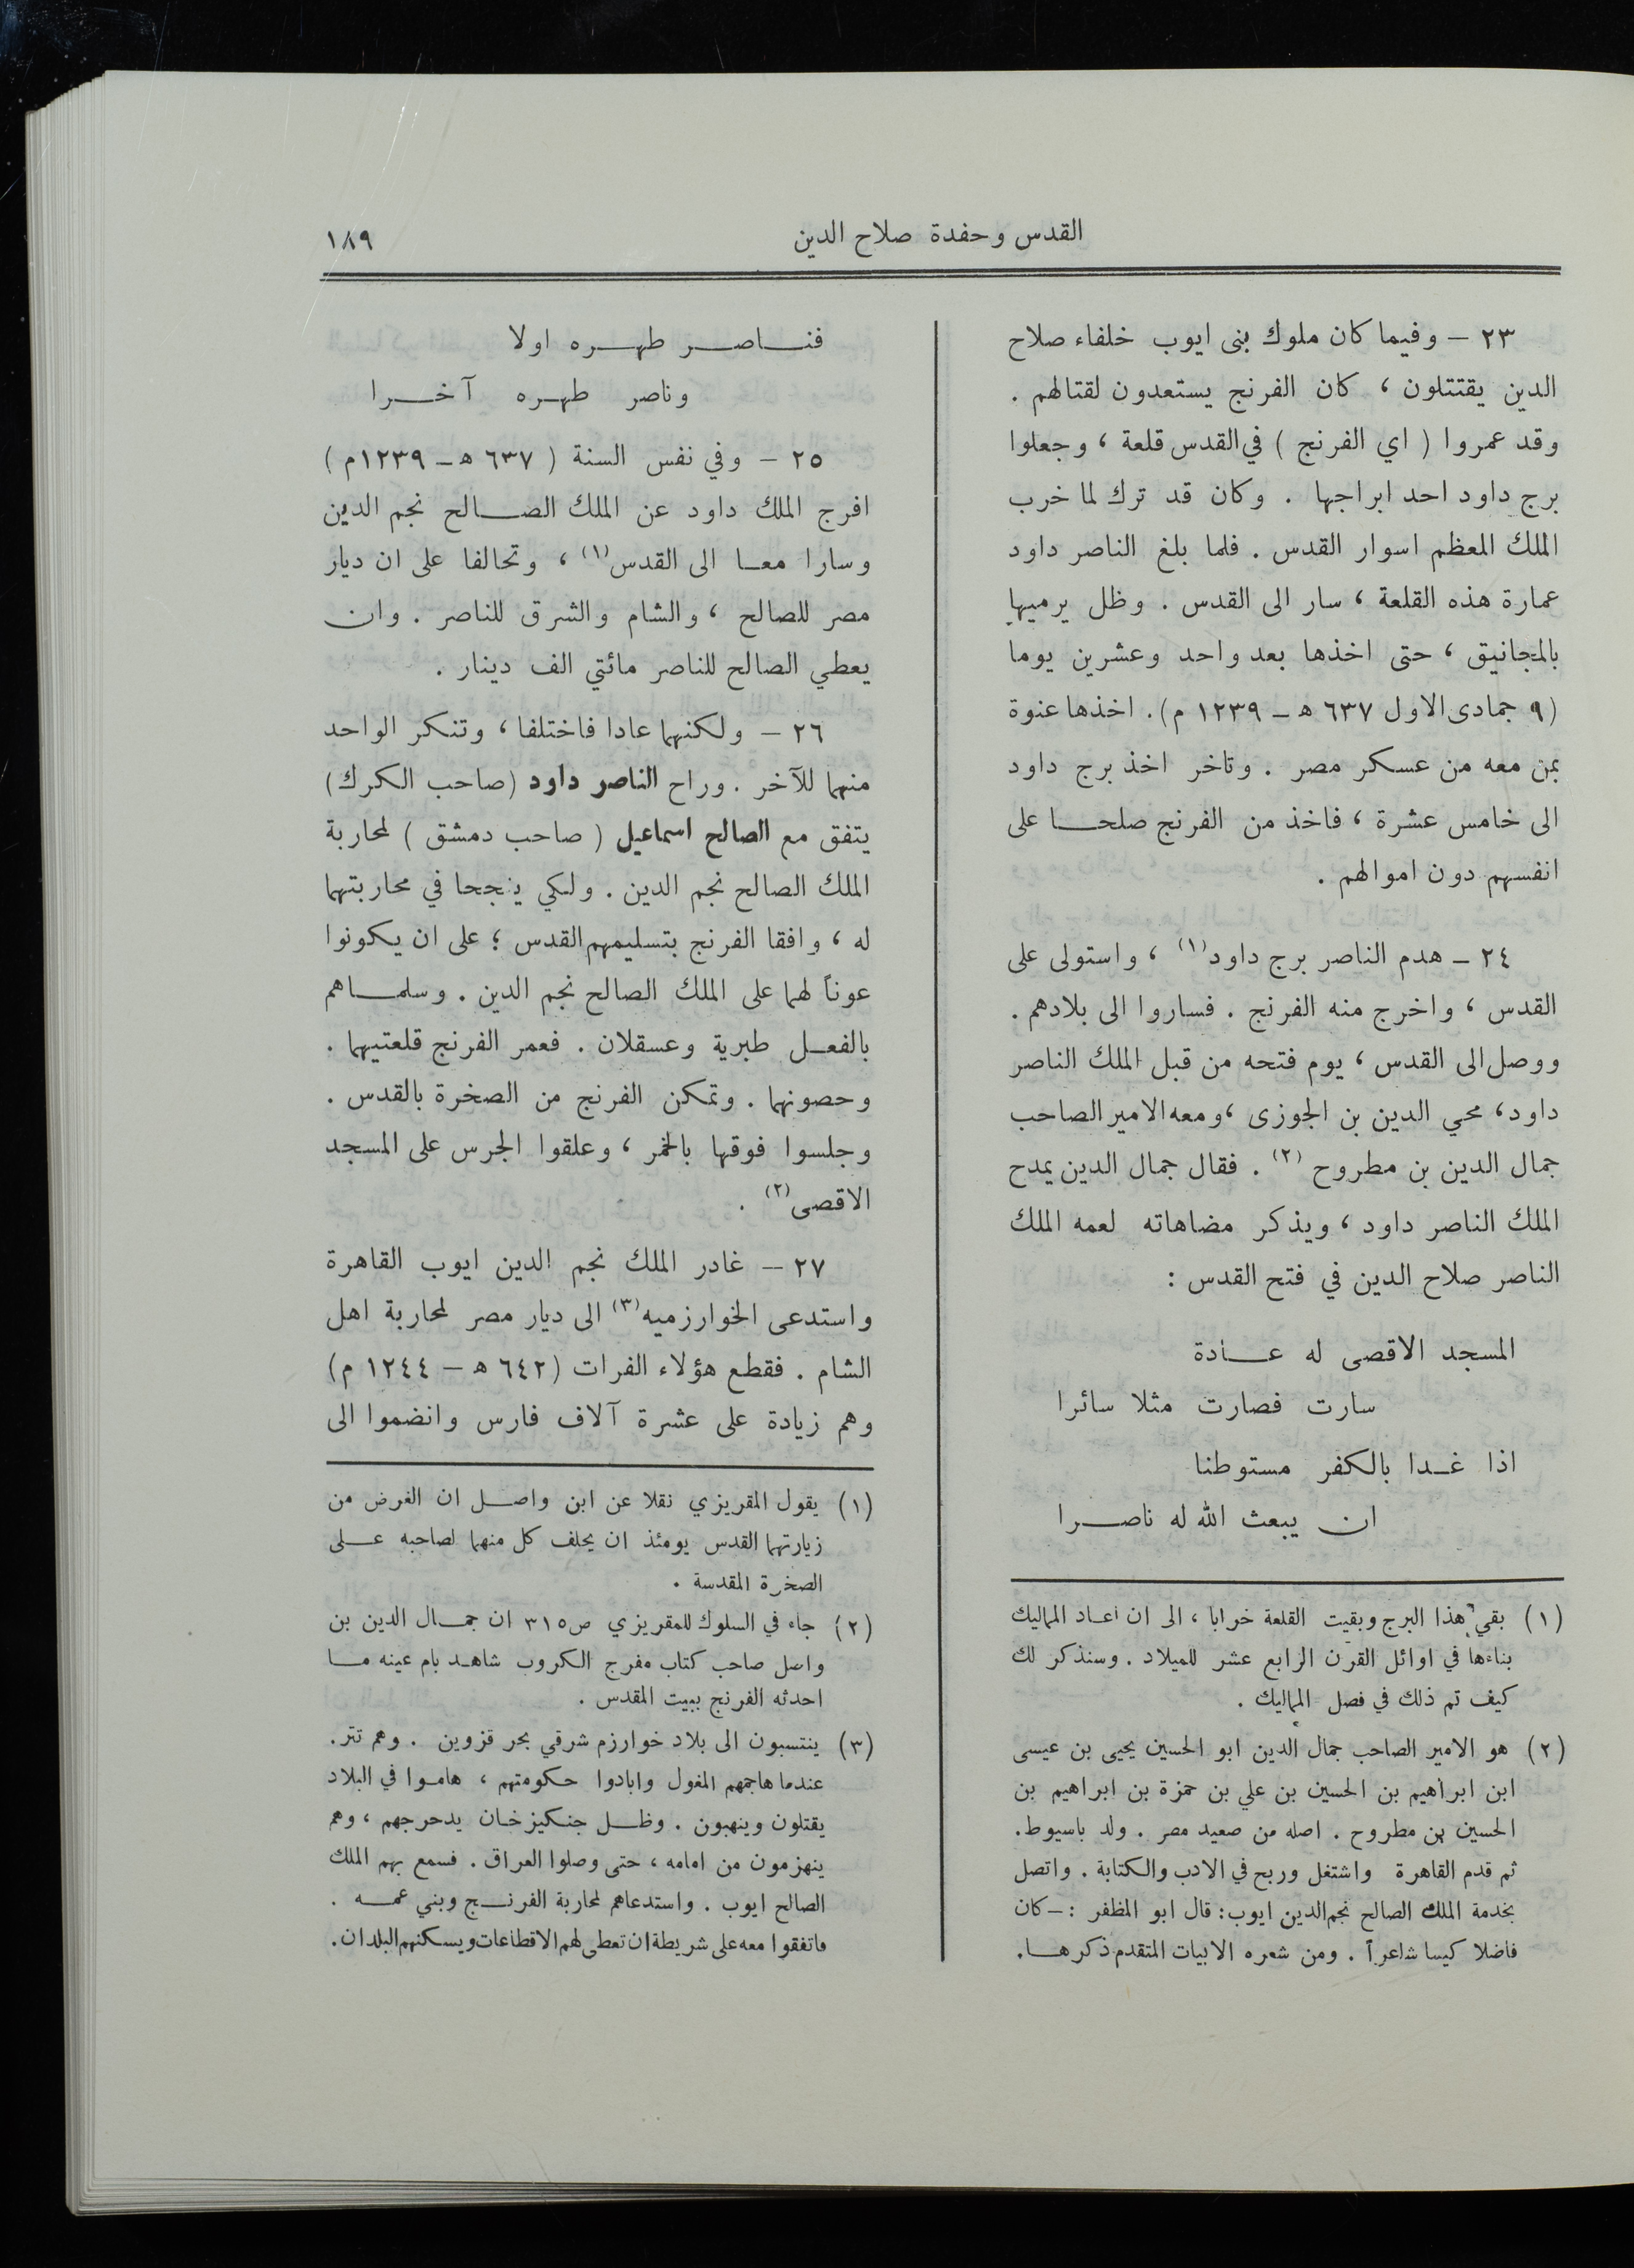 القدس وحفدة صلاح الدين
١٨٩
٢٣ — وفيما كان ملوك بنى ايوب خلفاء صلاح
الدين يقتتلون ، كان الفرنج يستعدون لقتالهم .
وقد عمروا ( اي الفرنج ) في القدس قلعة ، وجعلوا
برج داود احد ابراجها . وكان قد ترك لما خرب
الملك المعظم اسوار القدس . فلما بلغ الناصر داود
عمارة هذه القلعة ، سار الى القدس . وظل يرميها
بالمجانيق ، حتى اخذها بعد واحد وعشرين يوما
(٩ جمادى الاول ٦٣٧ هـ — ١٢٣٩ م). اخذها عنوة
بمن معه من عسكر مصر . وتاخر اخذ برج داود
الى خامس عشرة ، فاخذ من الفرنج صلحا على
انفسهم دون اموالهم .
٢٤ — هدم الناصر برج داود(١) ، واستولى على
القدس ، واخرج منه الفرنج . فساروا الى بلادهم .
ووصل الى القدس ، يوم فتحه من قبل الملك الناصر
داود ، محي الدين بن الجوزى ، ومعه الامير الصاحب
جمال الدين بن مطروح (٢) . فقال جمال الدين يمدح
الملك الناصر داود ، ويذكر مضاهاته لعمه الملك
الناصر صلاح الدين في فتح القدس :
المسجد الاقصى له عادة
سارت فصارت مثلا سائرا
اذا غدا بالكفر مستوطنا
ان يبعث الله له ناصرا
(١) بقي هذا البرج وبقيت القلعة خرابا ، الى ان اعاد المماليك
بناءها في اوائل القرن الرابع عشر للميلاد . وسنذكر لك
كيف تم ذلك في فصل المماليك .
(٢) هو الامير الصاحب جمال الدين ابو الحسين يحيى بن عيسى
ابن ابراهيم بن الحسين بن علي بن حمزة بن ابراهيم بن
الحسين بن مطروح . اصله من صعيد مصر . ولد باسيوط .
ثم قدم القاهرة واشتغل وربح في الادب والكتابة . واتصل
بخدمة الملك الصالح نجم الدين ايوب : قال ابو المظفر : — كان
فاضلا كيسا شاعراً . ومن شعره الابيات المتقدم ذكرها .
فناصر طهره اولا
وناصر طهره آخرا
٢٥ — وفي نفس السنة ( ٦٣٧ هـ — ١٢٣٩ م )
افرج الملك داود عن الملك الصالح نجم الدين
وسارا معا الى القدس(١) ، وتحالفا على ان ديار
مصر للصالح ، والشام والشرق للناصر . وان
يعطي الصالح للناصر مائتي الف دينار .
٢٦ — ولكنهما عادا فاختلفا ، وتنكر الواحد
منهما للآخر . وراح الناصر داود (صاحب الكرك)
يتفق مع الصالح اسماعيل ( صاحب دمشق ) لمحاربة
الملك الصالح نجم الدين . ولكي ينجحا في محاربتهما
له ، وافقا الفرنج بتسليمهم القدس ؛ على ان يكونوا
عوناً لهما على الملك الصالح نجم الدين . وسلماهم
بالفعل طبرية وعسقلان . فعمر الفرنج قلعتيهما .
وحصونهما . وتمكن الفرنج من الصخرة بالقدس .
وجلسوا فوقها بالخمر ، وعلقوا الجرس على المسجد
الاقصى(٢) .
٢٧ — غادر الملك نجم الدين ايوب القاهرة
واستدعى الخوارزميه(٣) الى ديار مصر لمحاربة اهل
الشام . فقطع هؤلاء الفرات (٦٤٢ هـ — ١٢٤٤ م)
وهم زيادة على عشرة آلاف فارس وانضموا الى
(١) يقول المقريزي نقلا عن ابن واصل ان الغرض من
زيارتهما القدس يومئذ ان يحلف كل منهما لصاحبه على
الصخرة المقدسة .
(٢) جاء في السلوك للمقريزي ص ٣١٥ ان جمال الدين بن
واصل صاحب كتاب مفرج الكروب شاهد بام عينه ما
احدثه الفرنج ببيت المقدس .
(٣) ينتسبون الى بلاد خوارزم شرقي بحر قزوين . وهم تتر .
عندما هاجمهم المغول وابادوا حكومتهم ، هاموا في البلاد
يقتلون وينهبون . وظل جنكيزخان يدحرجهم ، وهم
ينهزمون من امامه ، حتى وصلوا العراق . فسمع بهم الملك
الصالح ايوب . واستدعاهم لمحاربة الفرنج وبني عمه .
فاتفقوا معه على شريطة ان تعطى لهم الاقطاعات ويسكنهم البلدان .